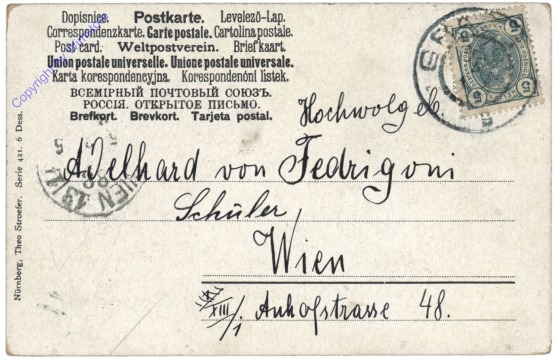 Dopisnice. Postkarte. Levelező-Lap.
Correspondenzkarte. Carte postale. Cartolina postale.
Post card. Weltpostverein. Briefkaart.
Union postale universelle. Unione postale universale.
Karta korespondencyjna. Korespondenčni listek.
ВСЕМІРНЫЙ ПОЧТОВЫЙ СОЮЗЪ.
РОССІЯ. ОТКРЫТОЕ ПИСЬМО.
Brefkort. Brevkort. Tarjeta postal.
Hochwolgeb.
Adelhard von Fedrigoni
Schüler
Wien
XIII/1 Anhofstrasse 48.
WIEN 13
5
5
5
Nürnberg, Theo Stroefer. Serie 421. 6 Dess.